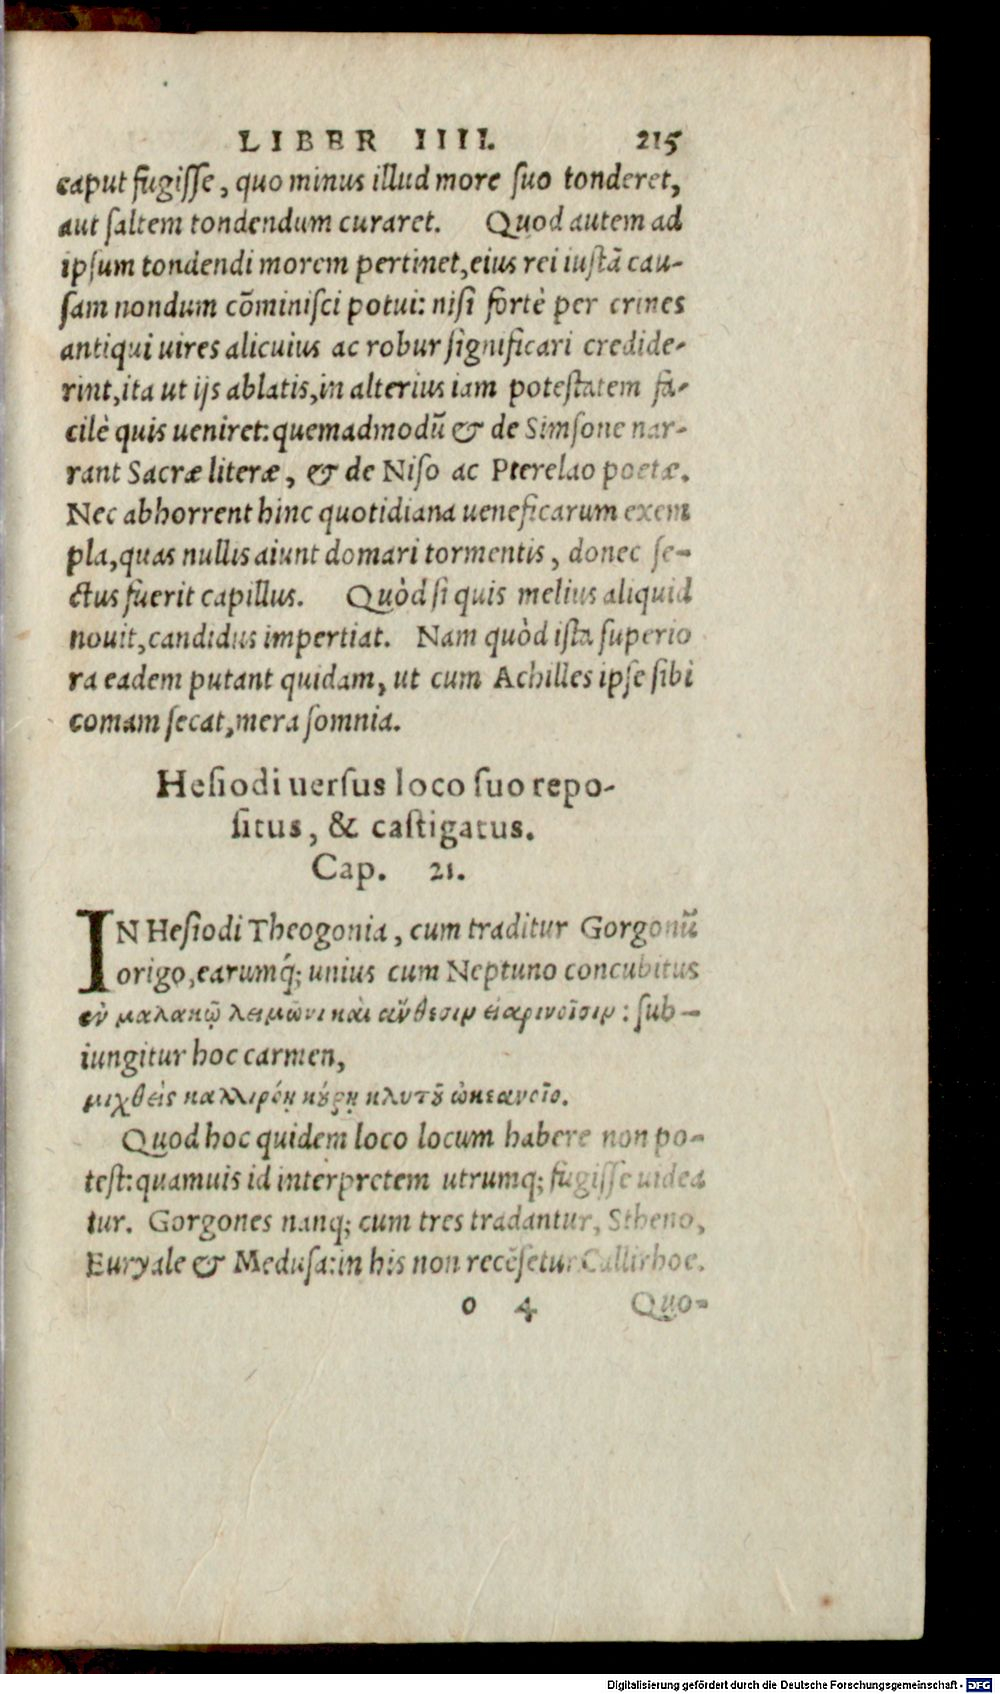 LIBER IIII. 215
caput fugisse, quo minus illud more suo tonderet,
aut saltem tondendum curaret. Quod autem ad
ipsum tondendi morem pertinet, eius rei iustã cau-
sam nondum cõminisci potui: nisi fortè per crines
antiqui uires alicuius ac robur significari credide-
rint, ita ut ijs ablatis, in alterius iam potestatem fa-
cilè quis ueniret: quemadmodũ & de Simsone nar-
rant Sacræ literæ, & de Niso ac Pterelao poetæ.
Nec abhorrent hinc quotidiana ueneficarum exem
pla, quas nullis aiunt domari tormentis, donec se-
ctus fuerit capillus. Quòd si quis melius aliquid
nouit, candidus impertiat. Nam quòd ista superio
ra eadem putant quidam, ut cum Achilles ipse sibi
comam secat, mera somnia.
Hesiodi uersus loco suo repo-
situs, & castigatus.
Cap. 21.
IN Hesiodi Theogonia, cum traditur Gorgonũ
origo, earumq́; unius cum Neptuno concubitus
ἐν μαλακῷ λειμῶνι καὶ ἄνθεσιν εἰαρινοῖσιν: sub-
iungitur hoc carmen,
μιχθεὶς καλλιρόῃ κόρῃ κλυτȣ͂ ὠκεανοῖο.
Quod hoc quidem loco locum habere non po-
test: quamuis id interpretem utrumq; fugisse uidea
tur. Gorgones nanq; cum tres tradantur, Stheno,
Euryale & Medusa: in his non recẽsetur Callirhoe.
o 4 Quo-
Digitalisierung gefördert durch die Deutsche Forschungsgemeinschaft - DFG